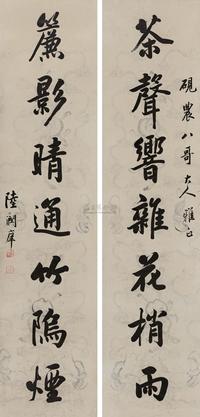 茶聲響雜花梢雨
硯農八哥大人雅正
簾影晴通竹隖煙
陸潤庠